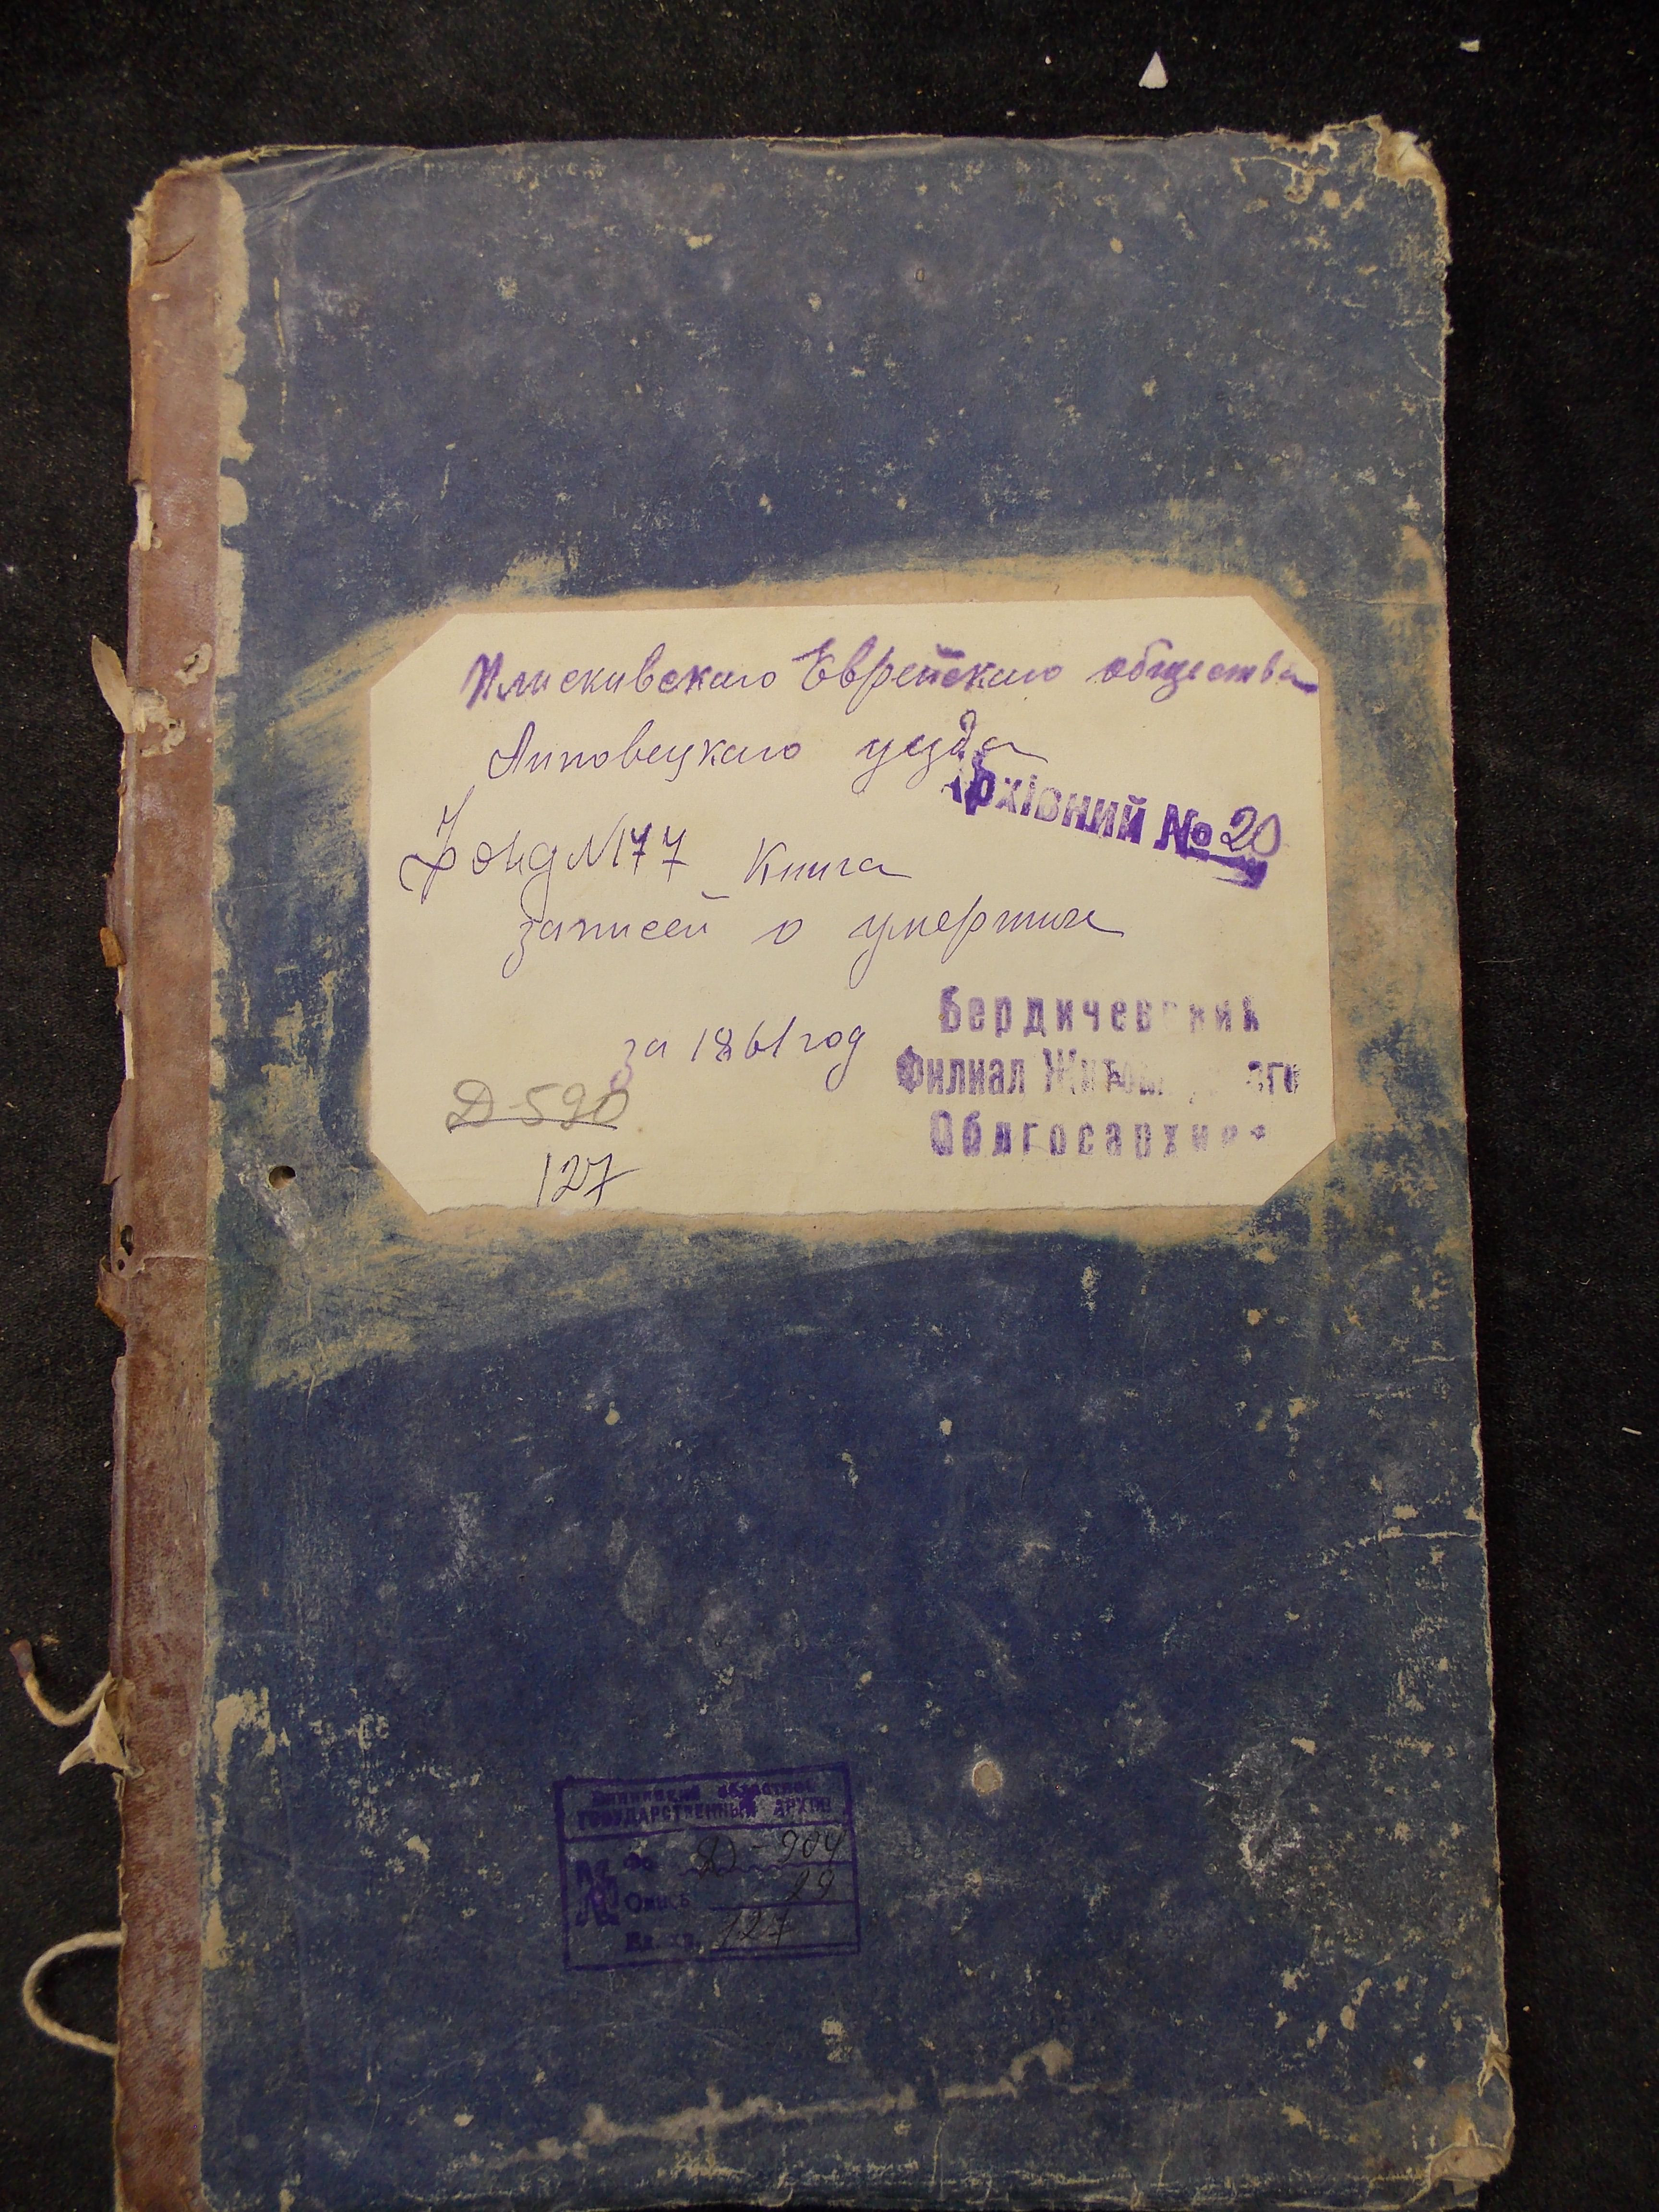 Плисковскаго Еврейскаго общества
Липовецкаго уезда
Архівний № 20
Фонд N177 Книга
записей о умерших
за 1861 год
Бердичевский
Филиал Житомирского
Облгосархива
Д-590
127
областной
ГОСУДАРСТВЕННЫЙ АРХИВ
№ Фо Д-904
Опись 29
Ед. хр. 127